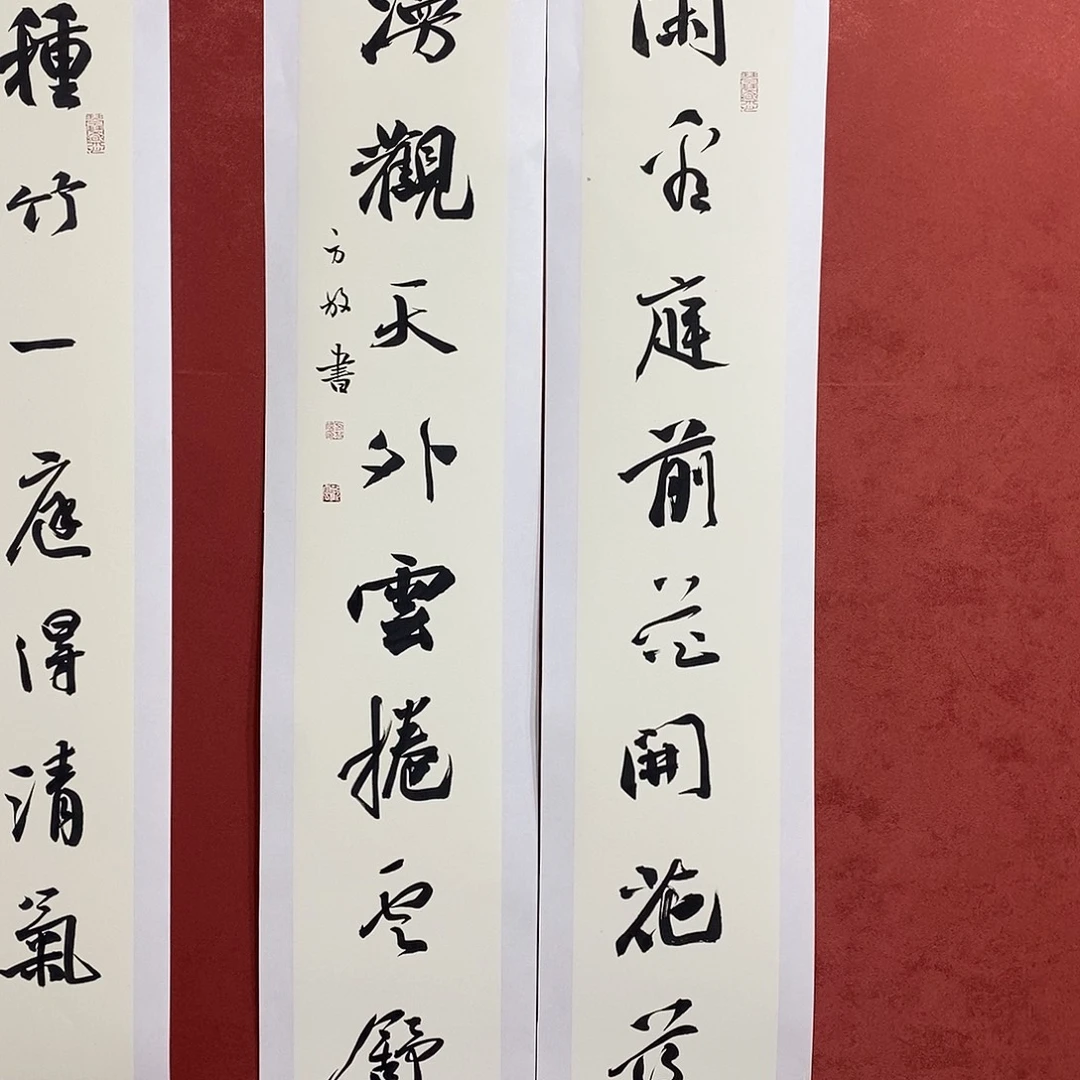 閑看庭前花開花落
漫觀天外雲捲雲舒
方放書
種竹一庭得清氣